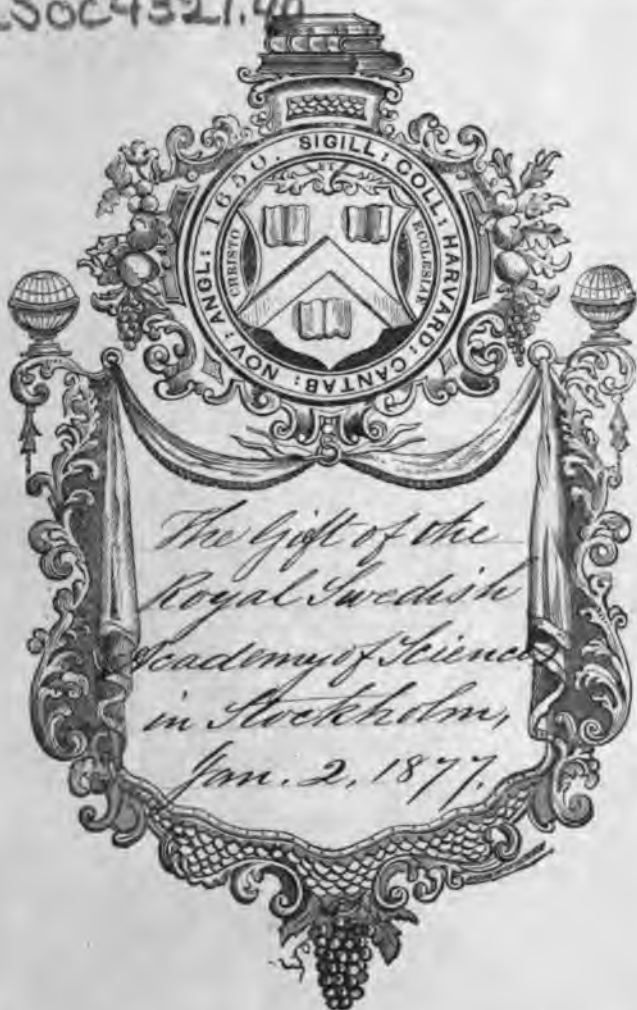 LSoc4321.40
SIGILL: COLL: HARVARD: CANTAB: NOV: ANGL: 1650.
ET
CHRISTO
ECCLESIAE
The Gift of the
Royal Swedish
Academy of Sciences
in Stockholm,
Jan. 2, 1877.